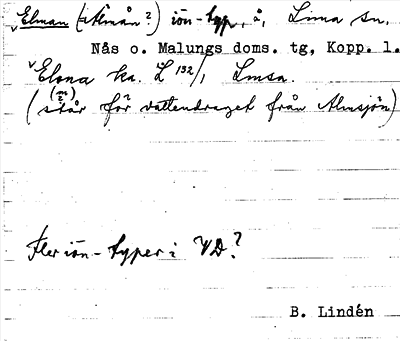 Elman (Almån?) iön-typ, å, Lima sn,
Nås o. Malungs doms. tg, Kopp. l.
Elona ka. L 132/1, Lmsa.
(står för vattendraget från Almsjön)
Fler iön-typer i VD?
B. Lindén